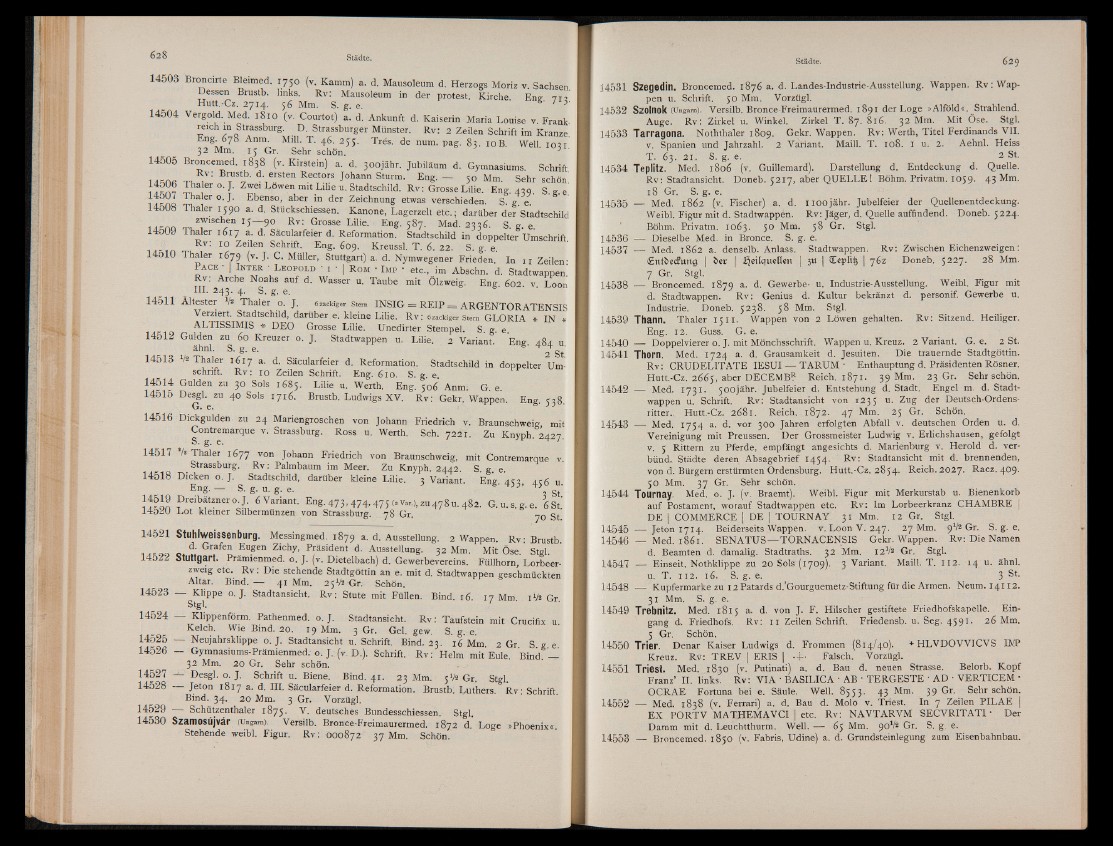 628 Städte.
14503 Broncirte Bleimed. 1750 (v. Kamm) a. d. Mausoleum d. Herzogs Moriz v. Sachsen.
Dessen Brustb. links. Rv: Mausoleum in der protest. Kirche. Eng. 713.
Hutt.-Cz. 2714. 56 Mm. S. g. e.
14504 Vergold. Med. 1810 (v. Courtot) a. d. Ankunft d. Kaiserin Maria Louise v. Frank-
reich in Strassburg. D. Strassburger Münster. Rv: 2 Zeilen Schrift im Kranze.
Eng. 678 Anm. Mill. T. 46. 255. Trés. de num. pag. 83. 10B. Well. 1031.
32 Mm. 15 Gr. Sehr schön.
14505 Broncemed. 1838 (v. Kirstein) a. d. 300jähr. Jubiläum d. Gymnasiums. Schrift.
Rv: Brustb. d. ersten Rectors Johann Sturm. Eng. — 50 Mm. Sehr schön.
14506 Thaler o. J. Zwei Löwen mit Lilie u. Stadtschild. Rv: Grosse Lilie. Eng. 439. S. g. e.
14507 Thaler o. J. Ebenso, aber in der Zeichnung etwas verschieden. S. g. e.
14508 Thaler 1590 a. d. Stückschiessen. Kanone, Lagerzelt etc.; darüber der Stadtschild
zwischen 15—90 Rv: Grosse Lilie. Eng. 587. Mad. 2336. S. g. e.
14509 Thaler 1617 a. d. Säcularfeier d. Reformation. Stadtschild in doppelter Umschrift.
Rv: 10 Zeilen Schrift. Eng. 609. Kreussl. T. 6. 22. S. g. e.
14510 Thaler 1679 (v. J. C. Müller, Stuttgart) a. d. Nymwegener Frieden. In 11 Zeilen:
PACE · | INTER · LEOPOLD · I · | ROM · IMP · etc., im Abschn. d. Stadtwappen.
Rv: Arche Noahs auf d. Wasser u. Taube mit Ölzweig. Eng. 602. v. Loon
III. 243. 4. S. g. e.
14511 Ältester 1/2 Thaler o. J. 6zackiger Stern INSIG = REIP = ARGENTORATENSIS
Verziert. Stadtschild, darüber e. kleine Lilie. Rv: 6zackiger Stern GLORIA * IN *
ALTISSIMIS * DEO Grosse Lilie. Unedirter Stempel. S. g. e.
14512 Gulden zu 60 Kreuzer o. J. Stadtwappen u. Lilie. 2 Variant. Eng. 484 u.
ähnl. S. g. e. 2 St.
14513 1/2 Thaler 1617 a. d. Säcularfeier d. Reformation. Stadtschild in doppelter Um-
schrift. Rv: 10 Zeilen Schrift. Eng. 610. S. g. e.
14514 Gulden zu 30 Sols 1685. Lilie u. Werth. Eng. 506 Anm. G. e.
14515 Desgl. zu 40 Sols 1716. Brustb. Ludwigs XV. Rv: Gekr. Wappen. Eng. 538.
G. e.
14516 Dickgulden zu 24 Mariengroschen von Johann Friedrich v. Braunschweig, mit
Contremarque v. Strassburg. Ross u. Werth. Sch. 7221. Zu Knyph. 2427.
S. g. e.
14517 2/3 Thaler 1677 von Johann Friedrich von Braunschweig, mit Contremarque v.
Strassburg. Rv: Palmbaum im Meer. Zu Knyph. 2442. S. g. e.
14518 Dicken o. J. Stadtschild, darüber kleine Lilie. 3 Variant. Eng. 453, 456 u.
Eng. — S. g. u. g. e. 3 St.
14519 Dreibätzner o. J. 6 Variant. Eng. 473, 474, 475 (2 Var.), zu 478 u. 482. G. u. s. g. e. 6 St.
14520 Lot kleiner Silbermünzen von Strassburg. 78 Gr. 70 St.
14521 Stuhlweissenburg. Messingmed. 1879 a. d. Ausstellung. 2 Wappen. Rv: Brustb.
d. Grafen Eugen Zichy, Präsident d. Ausstellung. 32 Mm. Mit Öse. Stgl.
14522 Stuttgart. Prämienmed. o. J. (v. Dietelbach) d. Gewerbevereins. Füllhorn, Lorbeer-
zweig etc. Rv: Die stehende Stadtgöttin an e. mit d. Stadtwappen geschmückten
Altar. Bind. — 41 Mm. 25 1/2 Gr. Schön.
14523 — Klippe o. J. Stadtansicht. Rv: Stute mit Füllen. Bind. 16. 17 Mm. 1 1/2 Gr.
Stgl.
14524 — Klippenförm. Pathenmed. o. J. Stadtansicht. Rv: Taufstein mit Crucifix u.
Kelch. Wie Bind. 20. 19 Mm. 3 Gr. Gel. gew. S. g. e.
14525 — Neujahrsklippe o. J. Stadtansicht u. Schrift. Bind. 23. 16 Mm. 2 Gr. S. g. e.
14526 — Gymnasiums-Prämienmed. o. J. (v. D.). Schrift. Rv: Helm mit Eule. Bind. —
32 Mm. 20 Gr. Sehr schön.
14527 — Desgl. o. J. Schrift u. Biene. Bind. 41. 23 Mm. 5 1/2 Gr. Stgl.
14528 — Jeton 1817 a. d. III. Säcularfeier d. Reformation. Brustb. Luthers. Rv: Schrift.
Bind. 34. 20 Mm. 3 Gr. Vorzügl.
14529 — Schützenthaler 1875. V. deutsches Bundesschiessen. Stgl.
14530 Szamosújvár (Ungarn). Versilb. Bronce-Freimaurermed. 1872 d. Loge »Phoenix«.
Stehende weibl. Figur. Rv: 000872 37 Mm. Schön.
Städte. 629
14531 Szegedin. Broncemed. 1876 a. d. Landes-Industrie-Ausstellung. Wappen. Rv: Wap-
pen u. Schrift. 50 Mm. Vorzügl.
14532 Szolnok (Ungarn). Versilb. Bronce-Freimaurermed. 1891 der Loge »Alföld«. Strahlend.
Auge. Rv: Zirkel u. Winkel. Zirkel T. 87. 816. 32 Mm. Mit Öse. Stgl.
14533 Tarragona. Noththaler 1809. Gekr. Wappen. Rv: Werth, Titel Ferdinands VII.
v. Spanien und Jahrzahl. 2 Variant. Maill. T. 108. 1 u. 2. Aehnl. Heiss
T. 63. 21. S. g. e. 2 St.
14534 Teplitz. Med. 1806 (v. Guillemard). Darstellung d. Entdeckung d. Quelle.
Rv: Stadtansicht. Doneb. 5217, aber QUELLE! Böhm. Privatm. 1059. 43 Mm.
18 Gr. S. g. e.
14535 — Med. 1862 (v. Fischer) a. d. 1100jähr. Jubelfeier der Quellenentdeckung.
Weibl. Figur mit d. Stadtwappen. Rv: Jäger, d. Quelle auffindend. Doneb. 5224.
Böhm. Privatm. 1063. 50 Mm. 58 Gr. Stgl.
14536 — Dieselbe Med. in Bronce. S. g. e.
14537 — Med. 1862 a. denselb. Anlass. Stadtwappen. Rv: Zwischen Eichenzweigen:
Entdeckung | der | Heilquellen | zu | Teplitz | 762 Doneb. 5227. 28 Mm.
7 Gr. Stgl.
14538 — Broncemed. 1879 a. d. Gewerbe- u. Industrie-Ausstellung. Weibl. Figur mit
d. Stadtwappen. Rv: Genius d. Kultur bekränzt d. personif. Gewerbe u.
Industrie. Doneb. 5238. 58 Mm. Stgl.
14539 Thann. Thaler 1511. Wappen von 2 Löwen gehalten. Rv: Sitzend. Heiliger.
Eng. 12. Guss. G. e.
14540 — Doppelvierer o. J. mit Mönchsschrift. Wappen u. Kreuz. 2 Variant. G. e. 2 St.
14541 Thorn. Med. 1724 a. d. Grausamkeit d. Jesuiten. Die trauernde Stadtgöttin.
Rv: CRUDELITATE IESUI — TARUM · Enthauptung d. Präsidenten Rösner.
Hutt.-Cz. 2665, aber DECEMBR Reich. 1871. 39 Mm. 23 Gr. Sehr schön.
14542 — Med. 1731. 500jähr. Jubelfeier d. Entstehung d. Stadt. Engel m. d. Stadt-
wappen u. Schrift. Rv: Stadtansicht von 1235 u. Zug der Deutsch-Ordens-
ritter. Hutt.-Cz. 2681. Reich. 1872. 47 Mm. 25 Gr. Schön.
14543 — Med. 1754 a. d. vor 300 Jahren erfolgten Abfall v. deutschen Orden u. d.
Vereinigung mit Preussen. Der Grossmeister Ludwig v. Erlichshausen, gefolgt
v. 5 Rittern zu Pferde, empfängt angesichts d. Marienburg v. Herold d. ver-
bünd. Städte deren Absagebrief 1454. Rv: Stadtansicht mit d. brennenden,
von d. Bürgern erstürmten Ordensburg. Hutt.-Cz. 2854. Reich. 2027. Racz. 409.
50 Mm. 37 Gr. Sehr schön.
14544 Tournay. Med. o. J. (v. Braemt). Weibl. Figur mit Merkurstab u. Bienenkorb
auf Postament, worauf Stadtwappen etc. Rv: Im Lorbeerkranz CHAMBRE |
DE | COMMERCE | DE | TOURNAY 31 Mm. 12 Gr. Stgl.
14545 — Jeton 1714. Beiderseits Wappen. v. Loon V. 247. 27 Mm. 9 1/2 Gr. S. g. e.
14546 — Med. 1861. SENATUS—TORNACENSIS Gekr. Wappen. Rv: Die Namen
d. Beamten d. damalig. Stadtraths. 32 Mm. 12 1/2 Gr. Stgl.
14547 — Einseit. Nothklippe zu 20 Sols (1709). 3 Variant. Maill. T. 112. 14 u. ähnl.
u. T. 112. 16. S. g. e. 3 St.
14548 — Kupfermarke zu 12 Patards d.'Gourguemetz-Stiftung für die Armen. Neum. 14112.
31 Mm. S. g. e.
14549 Trebnitz. Med. 1815 a. d. von J. F. Hilscher gestiftete Friedhofskapelle. Ein-
gang d. Friedhofs. Rv: 11 Zeilen Schrift. Friedensb. u. Seg. 4591. 26 Mm.
5 Gr. Schön.
14550 Trier. Denar Kaiser Ludwigs d. Frommen (814/40). + HLVDOVVICVS IMP
Kreuz. Rv: TREV | ERIS | ·+· Falsch. Vorzügl.
14551 Triest. Med. 1830 (v. Putinati) a. d. Bau d. neuen Strasse. Belorb. Kopf
Franz' II. links. Rv: VIA · BASILICA · AB · TERGESTE · AD · VERTICEM ·
OCRAE Fortuna bei e. Säule. Well. 8553. 43 Mm. 39 Gr. Sehr schön.
14552 — Med. 1838 (v. Ferrari) a. d. Bau d. Molo v. Triest. In 7 Zeilen PILAE |
EX PORTV MATHEMAVCI | etc. Rv: NAVTARVM SECVRITATI · Der
Damm mit d. Leuchtthurm. Well. — 65 Mm. 90 1/2 Gr. S. g. e.
14553 — Broncemed. 1850 (v. Fabris, Udine) a. d. Grundsteinlegung zum Eisenbahnbau.